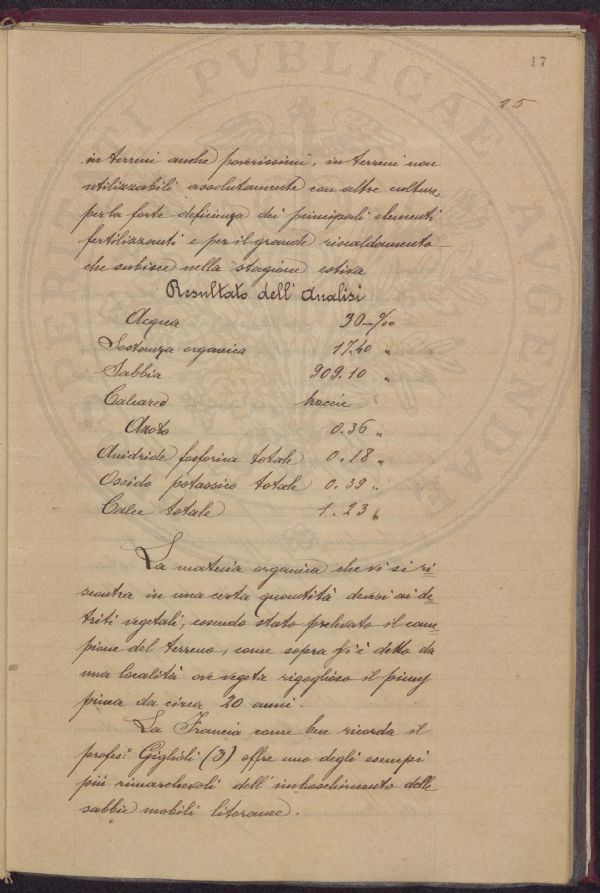 17
25
in terreni anche poverissimi, in terreni non
utilizzabili assolutamente con altre culture,
per la forte deficienza dei principali elementi
fertilizzanti e per il grande riscaldamento
che subisce nella stagione estiva
Resultato dell'Analisi
Acqua 30 - ‰
Sostanza organica 17.40 "
Sabbia 909.10 "
Calcareo traccie
Azoto 0.36 "
Anidride fosforica totale 0.18 "
Ossido potassico totale 0.39 "
Calce totale 1.23 "
La materia organica che vi si ri=
scontra in una certa quantità devesi ai de=
triti vegetali, essendo stato prelevato il cam=
pione del terreno, come sopra si è detto da
una località ove vegeta rigoglioso il pinus
pinea da circa 20 anni.
La Francia come ben ricorda il
profes.re Giglioli (3) offre uno degli esempi
più rimarchevoli dell'imboschimento delle
sabbie mobili litoranee.